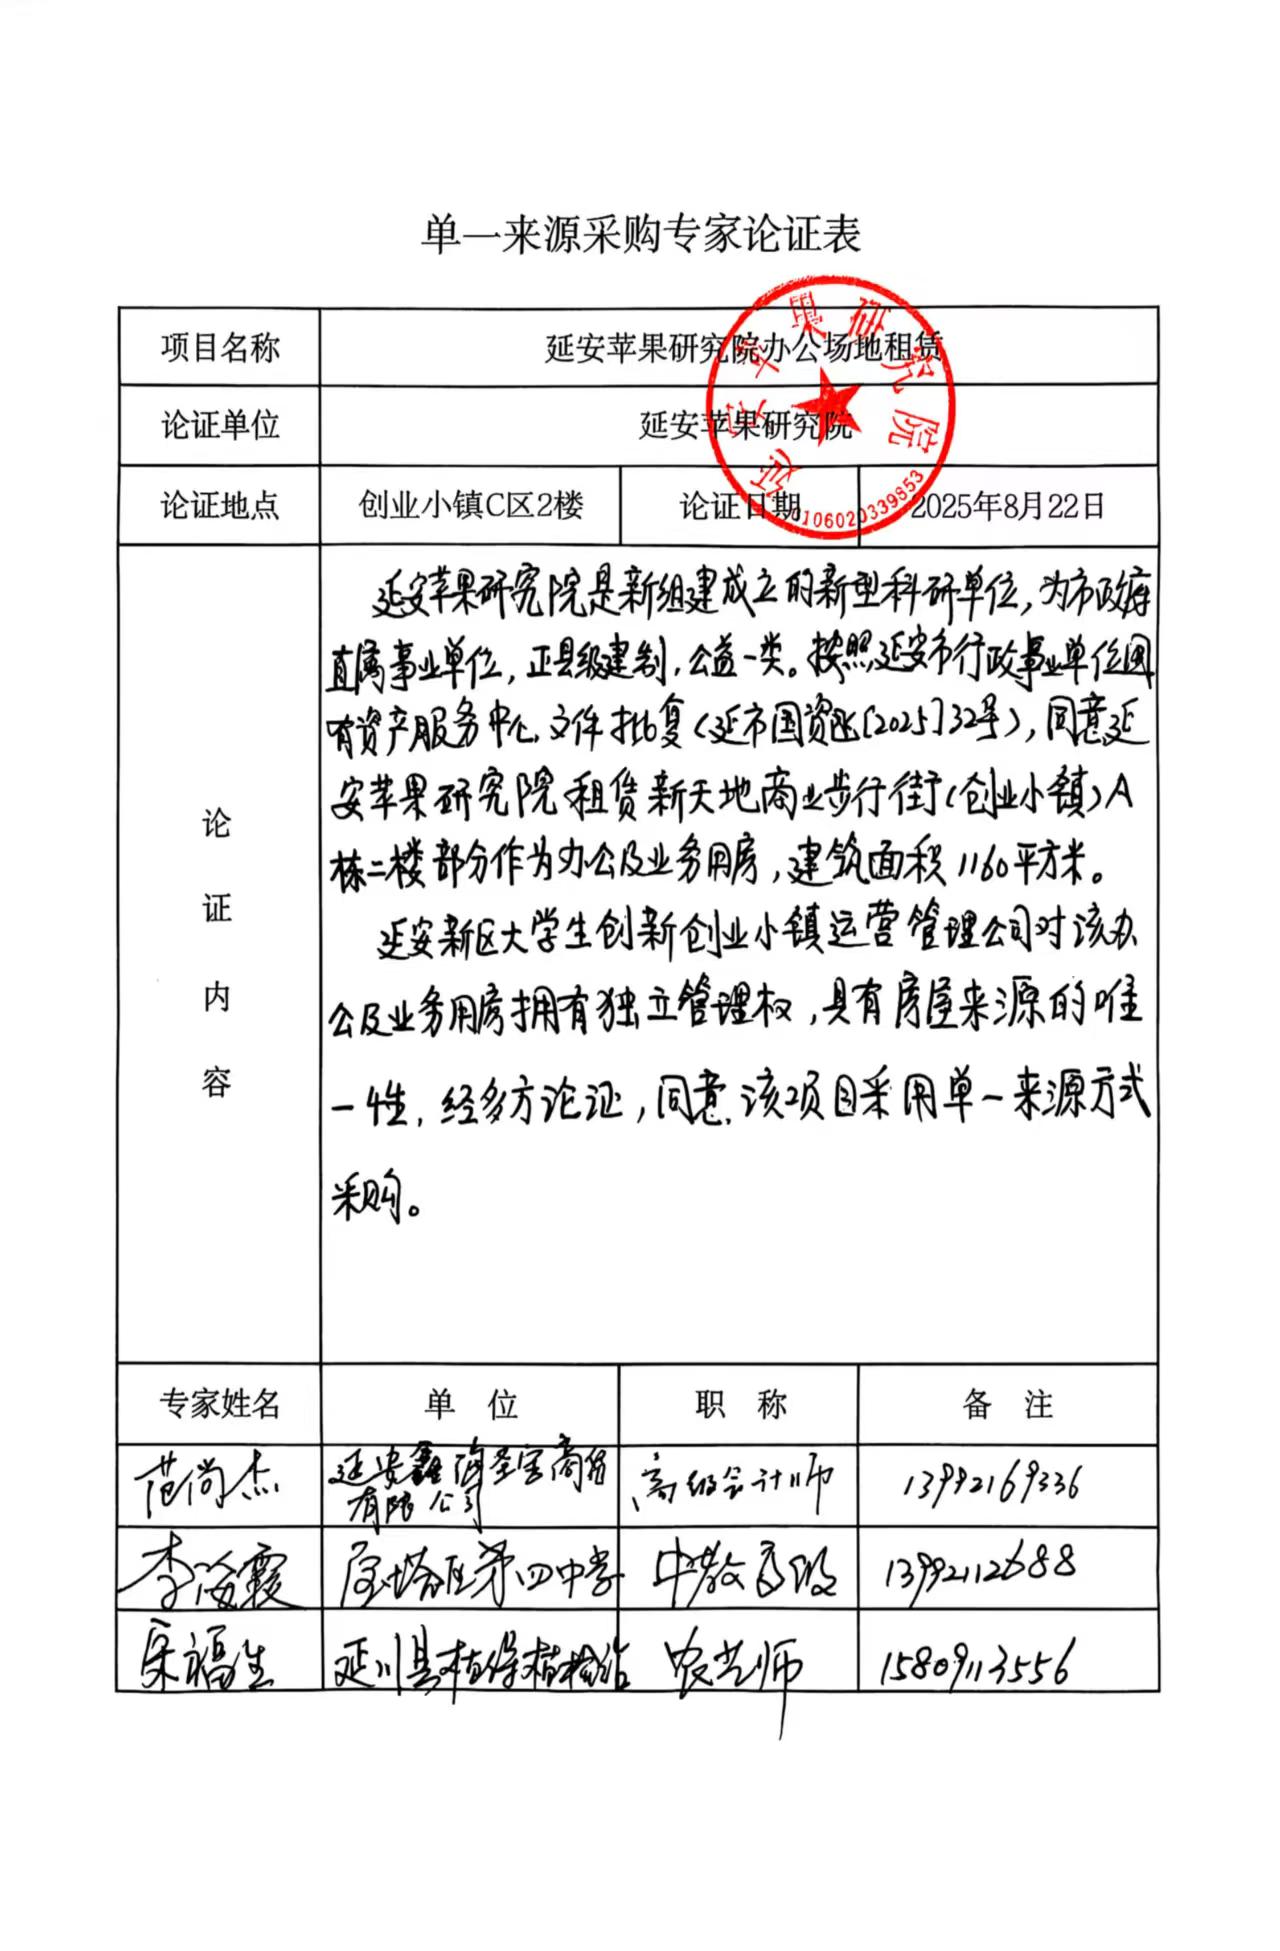 单一来源采购专家论证表
项目名称 延安苹果研究院办公场地租赁
论证单位 延安苹果研究院
论证地点 创业小镇C区2楼 论证日期 2025年8月22日
延安苹果研究院
0106020339853
论证内容
延安苹果研究院是新组建成立的新型科研单位，为市政府
直属事业单位，正县级建制，公益一类。按照延安市行政事业单位国
有资产服务中心文件批复（延市国资[2025]32号），同意延
安苹果研究院租赁新天地商业步行街（创业小镇）A
栋二楼部分作为办公及业务用房，建筑面积1160平方米。
延安新区大学生创新创业小镇运营管理公司对该办
公及业务用房拥有独立管理权，具有房屋来源的唯
一性，经多方论证，同意该项目采用单一来源方式
采购。
专家姓名 单位 职称 备注
范尚杰 延安鑫海圣宝商贸 高级会计师 13992169336
有限公司
李海霞 第四中学 中教高级 13992112688
福生 延川县植保植检站 农艺师 15809113556